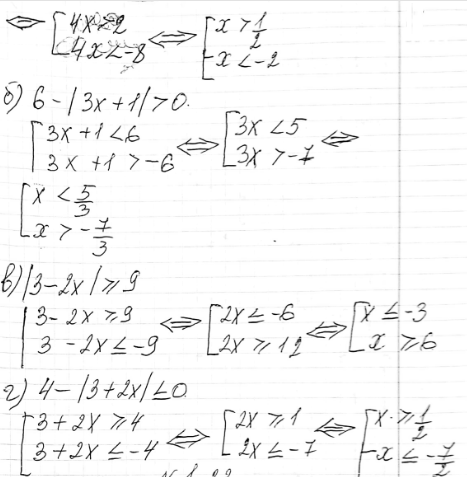 ⇔ [4x>2 ; 4x<-8 ⇔ [x>1/2 ; x<-2
б) 6-|3x+1|>0.
[3x+1<6 ; 3x+1>-6 ⇔ [3x<5 ; 3x>-7 ⇔
[x<5/3 ; x>-7/3
в) |3-2x|≥9
[3-2x≥9 ; 3-2x≤-9 ⇔ [2x≤-6 ; 2x≥12 ⇔ [x≤-3 ; x≥6
г) 4-|3+2x|≤0
[3+2x≥4 ; 3+2x≤-4 ⇔ [2x≥1 ; 2x≤-7 ⇔ [x≥1/2 ; x≤-7/2